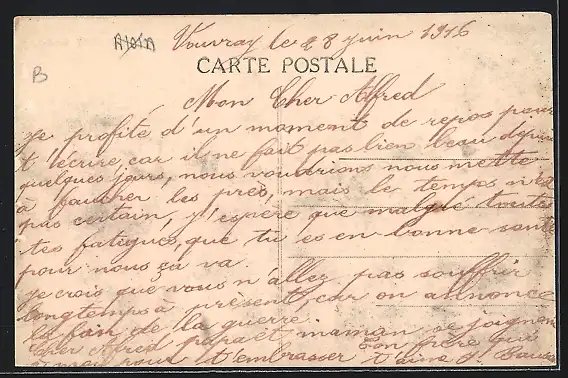 Vouvray le 28 juin 1916
B
CARTE POSTALE
Mon Cher Alfred
je profite d'un moment de repos pour
t'écrire, car il ne fait pas bien beau depuis
quelques jours, nous voudrions nous mettre
à faucher les prés, mais le temps n'est
pas certain, j'espère que malgré toutes
tes fatigues, que tu es en bonne santé
pour nous ça va.
je crois que vous n'allez pas souffrir
longtemps à présent, car on annonce
la fin de la guerre.
Cher Alfred papa et maman se joignent
à moi pour t'embrasser Ton frère qui
t'aime